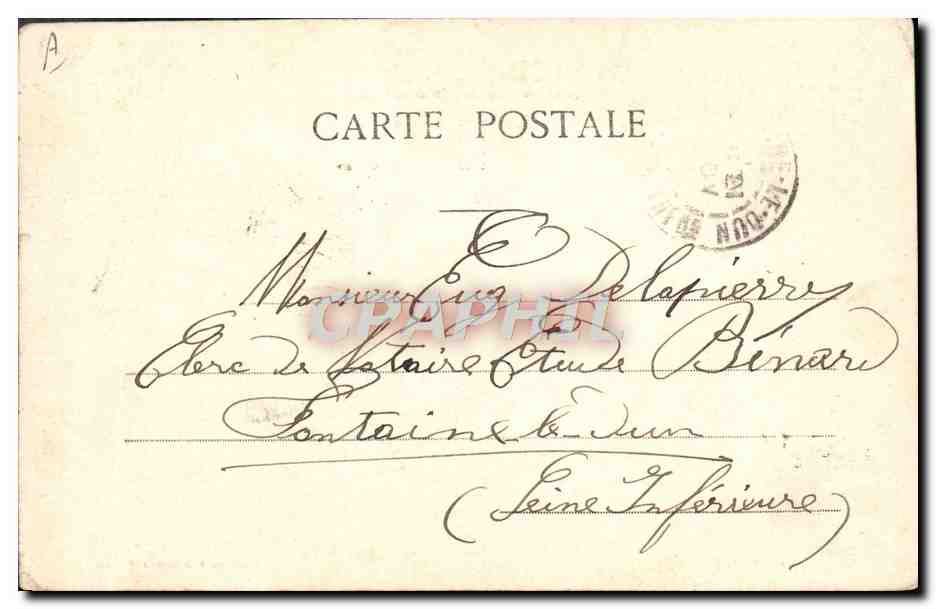 A
CARTE POSTALE
NE-LE-DUN
Monsieur Eug Delapierre
Clerc de Notaire Etude Bénard
Fontaine-le-Dun
(Seine Inférieure)
CPAPHIL